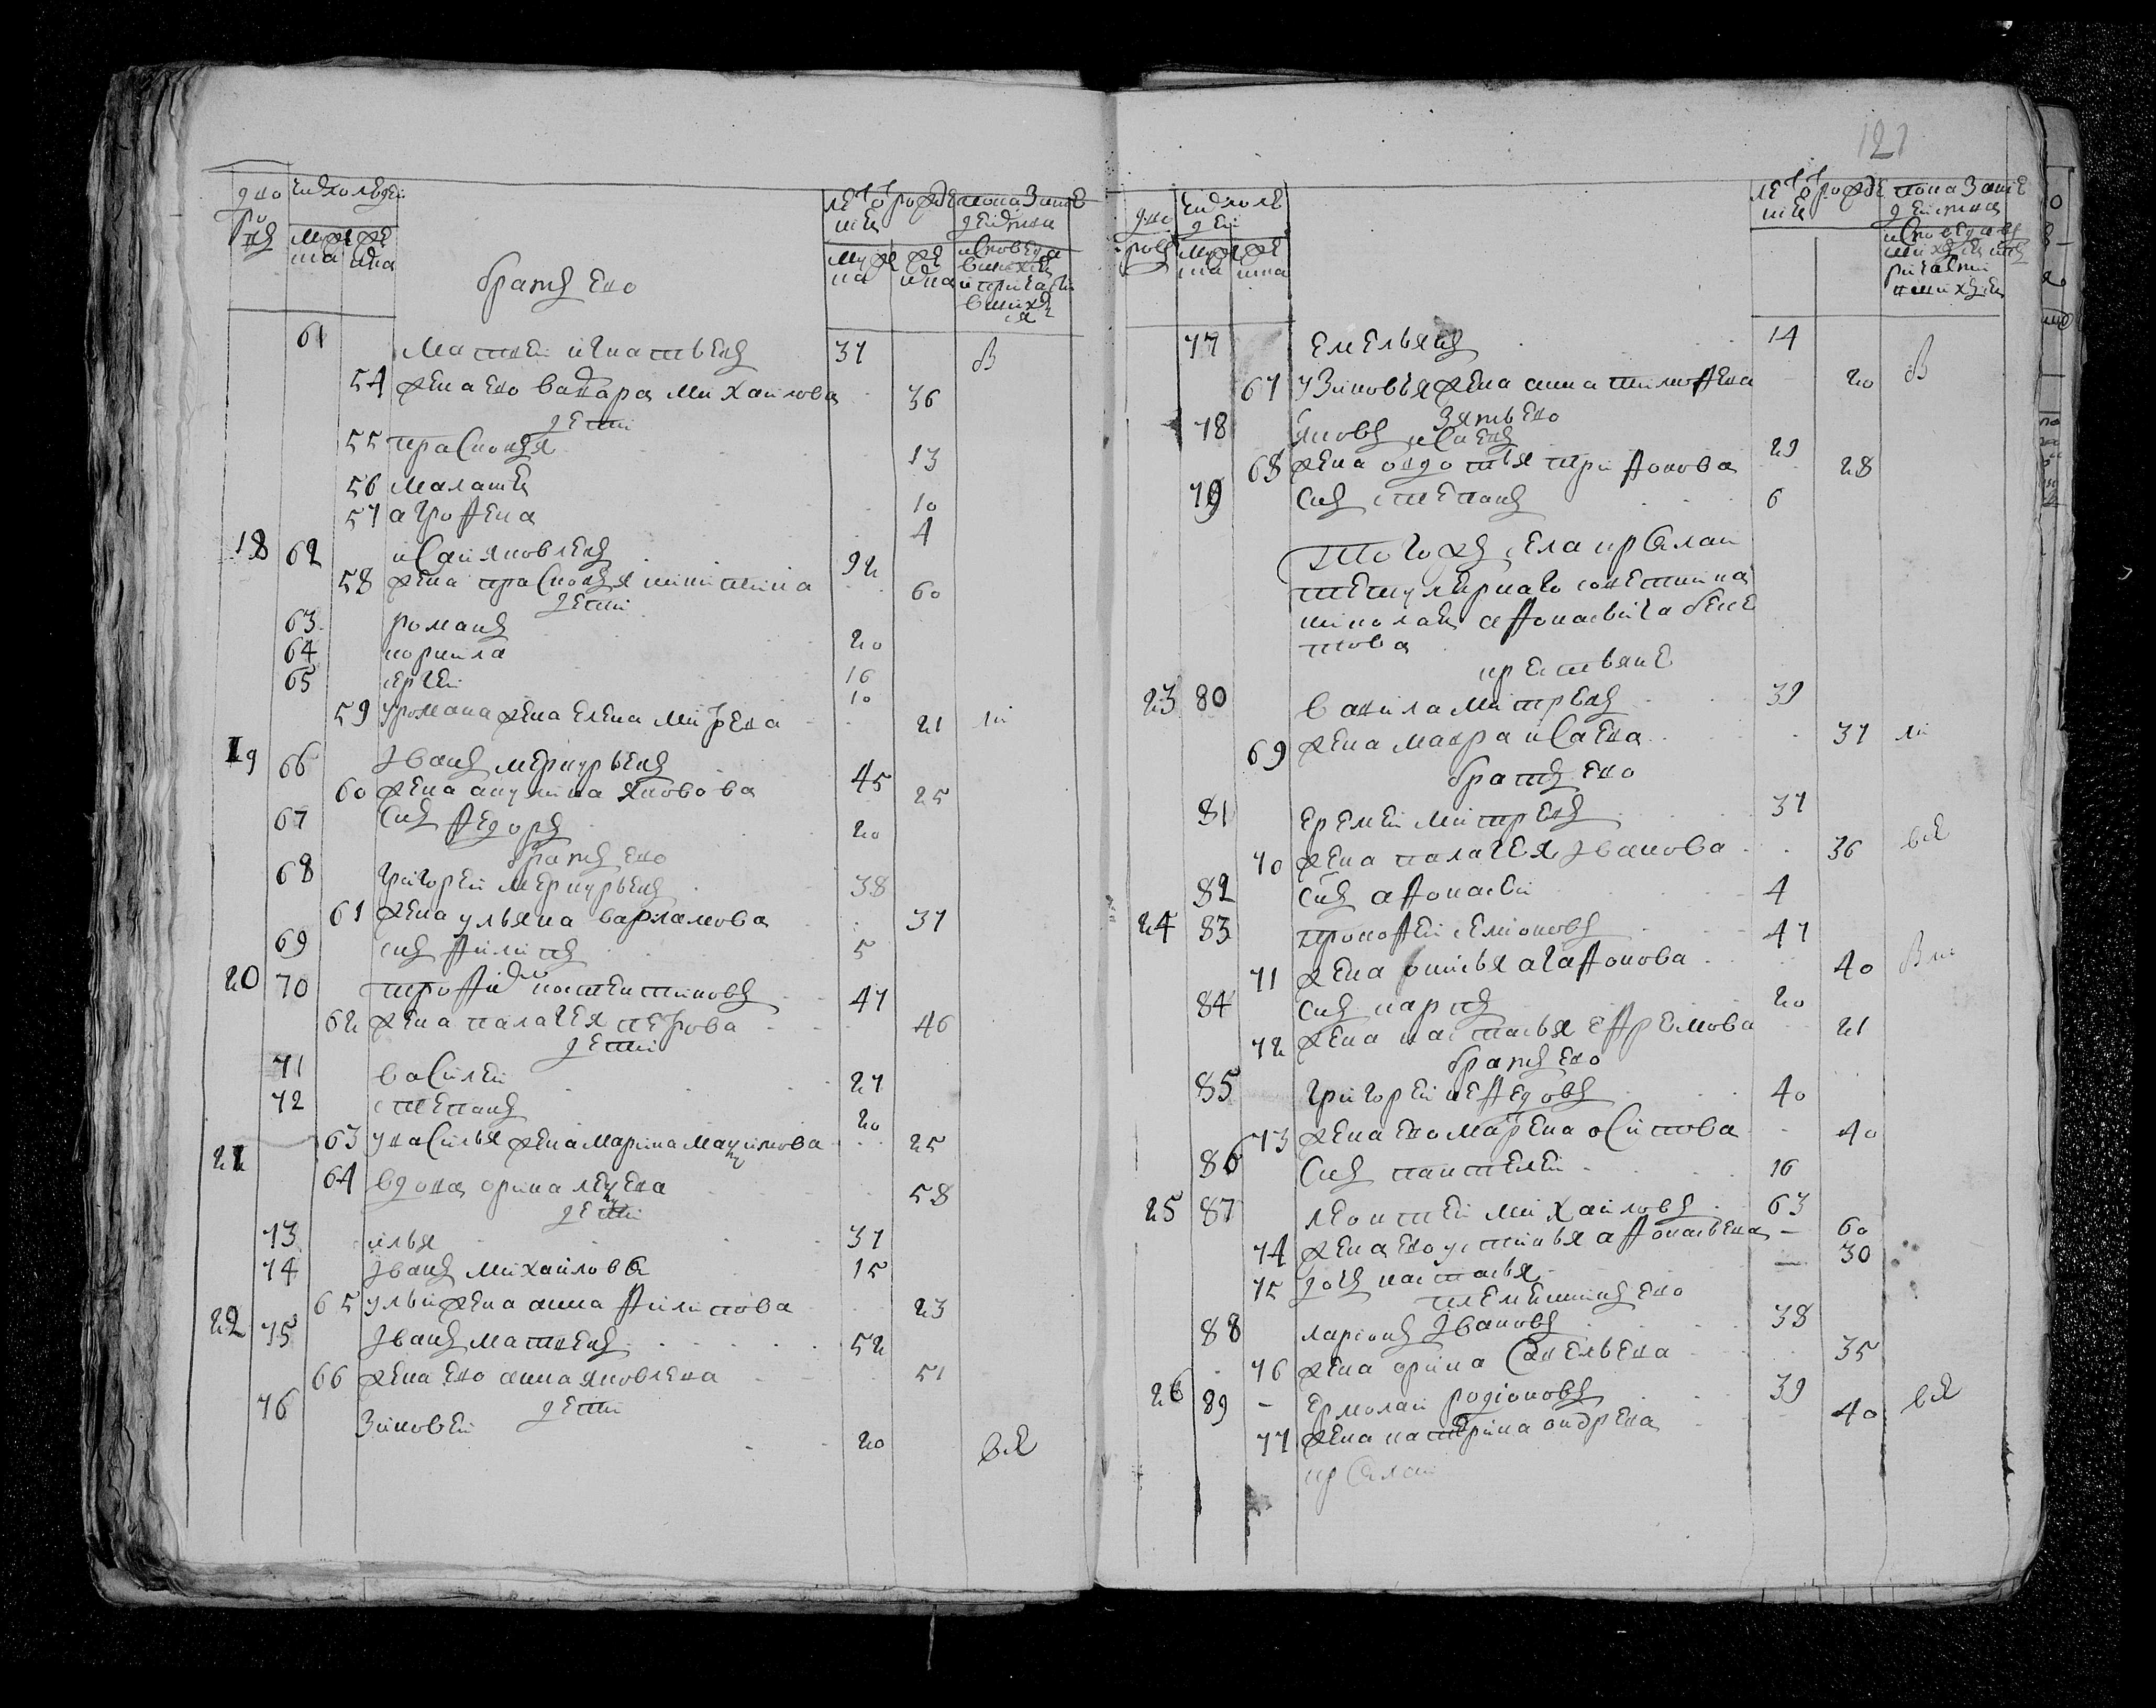 дво
ровъ
число людей
мужеска
женска
братъ ево
лета отъ рожде
ния
мужеска
женска
показание
действа
61 Матвей Игнатьевъ 37 В
54 жена ево Варвара Михайлова 36
дети
55 Прасковья 13
56 Маланья 10
57 Агрофена 4
18 62 Исай Яковлевъ 92
58 жена Прасковья Никитина 60
дети
63 Романъ 20
64 Корнила 16
65 Сергей 10
59 у Романа жена Елена Митрева 21
19 66 Иванъ Меркурьевъ 45
60 жена Акулина Яковова 25
67 Сынъ Федоръ 20
братъ ево
68 Григорей Меркурьевъ 38
61 жена Ульяна Варламова 37
69 сынъ Филипъ 5
20 70 Трофимъ Костентиновъ 47
62 жена Палагея Петрова 46
дети
71 Василей 27
72 Степанъ 20
63 у Василья жена Марина Максимова 25
21 64 вдова Орина 58
дети
73 Илья 37
74 Иванъ Михайловы 15
65 у Ильи жена Анна Филипова 23
22 75 Иванъ Матвеевъ 52
66 жена ево Анна Яковлева 51
дети
76 Зиновей 20
121
дво
ровъ
число лю
дей
мужеска
женска
лета отъ рожде
ния
показание
действа
77 Емельянъ 14
67 у Зиновья жена Анна Тимофева 20 В
зять ево
78 Яковъ Исаевъ 29
68 жена Овдотья Трифонова 28
79 Сынъ Степанъ 6
Того жъ села
титулярнаго советника
Николая Афонасьевича Беке
това
крестьяне
23 80 Вавила Митревъ 39
69 жена Мавра Исаева 37
братъ ево
81 Еремей Митревъ 37
70 жена Палагея Иванова 36
82 сынъ Афонасей 4
24 83 Прокофей Семионовъ 47
71 жена Агафонова 40
84 Сынъ Карпъ 20
72 жена Настасья Ефремова 21
братъ ево
85 Григорей Нефедовъ 40
73 жена ево Марфена Осипова 40
86 Сынъ Пантелей 16
25 87 Леонтей Михайловъ 63
74 жена ево Устинья Афонасьева 60
75 дочь Настасья 30
племянникъ ево
88 Ларионъ Ивановъ 38
76 жена Орина Савельева 35
26 89 Ермолай Родионовъ 39
77 жена Катерина Ондрева 40